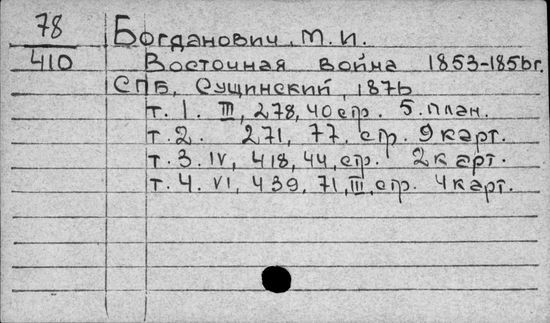 78 Богданович, М. И.
410 Восточная война 1853-1856г.
СПБ, Сущинский, 1876
т. 1. III, 278, 40 стр. 5. план.
т. 2. 271, 77, стр. 9 карт.
т. 3. IV, 418, 44, стр. 2 карт.
т. 4. VI, 439, 71, III, стр. 4 карт.